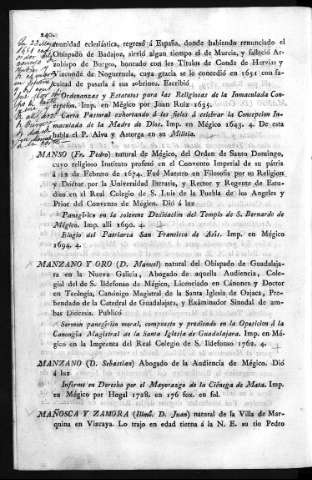 240
munidad eclesiástica, regresó á España, donde habiendo renunciado el
Obispado de Badajoz, sirvió algun tiempo el de Murcia, y falleció Ar-
zobispo de Burgos, honrado con los Títulos de Conde de Hervias y
Vizconde de Negueruela, cuya gracia se le concedió en 1651 con fa-
cultad de pasarla á sus sobrinos. Escribió
Ordenanzas y Estatutos para las Religiosas de la Inmaculada Con-
cepcion. Imp. en Mégico por Juan Ruiz 1635.
Carta Pastoral exhortando á los fieles á celebrar la Concepcion In-
maculada de la Madre de Dios. Imp. en Mégico 1643. 4. De esta
habla el P. Alva y Astorga en su Milicia.
MANSO (Fr. Pedro) natural de Mégico, del Orden de Santo Domingo,
cuyo religioso Instituto profesó en el Convento Imperial de su pátria
á 12 de Febrero de 1674. Fué Maestro en Filosofía por su Religion
y Doctor por la Universidad literaria, y Rector y Regente de Estu-
dios en el Real Colegio de S. Luis de la Puebla de los Angeles y
Prior del Convento de Mégico. Dió á luz
Panegírica en la solemne Dedicacion del Templo de S. Bernardo de
Mégico. Imp. allí 1690. 4.
Elogio del Patriarca San Francisco de Asis. Imp. en Mégico
1694. 4.
MANZANO Y ORO (D. Manuel) natural del Obispado de Guadalaja-
ra en la Nueva Galicia, Abogado de aquella Audiencia, Cole-
gial del de S. Ildefonso de Mégico, Licenciado en Cánones y Doctor
en Teología, Canónigo Magistral de la Santa Iglesia de Oajaca, Pre-
bendado de la Catedral de Guadalajara, y Exâminador Sinodal de am-
bas Diócesis. Publicó
Sermon panegírico moral, compuesto y predicado en la Oposicion á la
Canongía Magistral de la Santa Iglesia de Guadalajara. Imp. en Mé-
gico en la Imprenta del Real Colegio de S. Ildefonso 1762. 4.
MANZANO (D. Sebastian) Abogado de la Audiencia de Mégico. Dió
á luz
Informe en Derecho por el Mayorazgo de la Ciénega de Mata. Imp.
en Mégico por Hogal 1728. en 176 fox. en fol.
MAÑOSCA Y ZAMORA (Illmô. D. Juan) natural de la Villa de Mar-
quina en Vizcaya. Lo trajo en edad tierna á la N. E. su tio Pedro